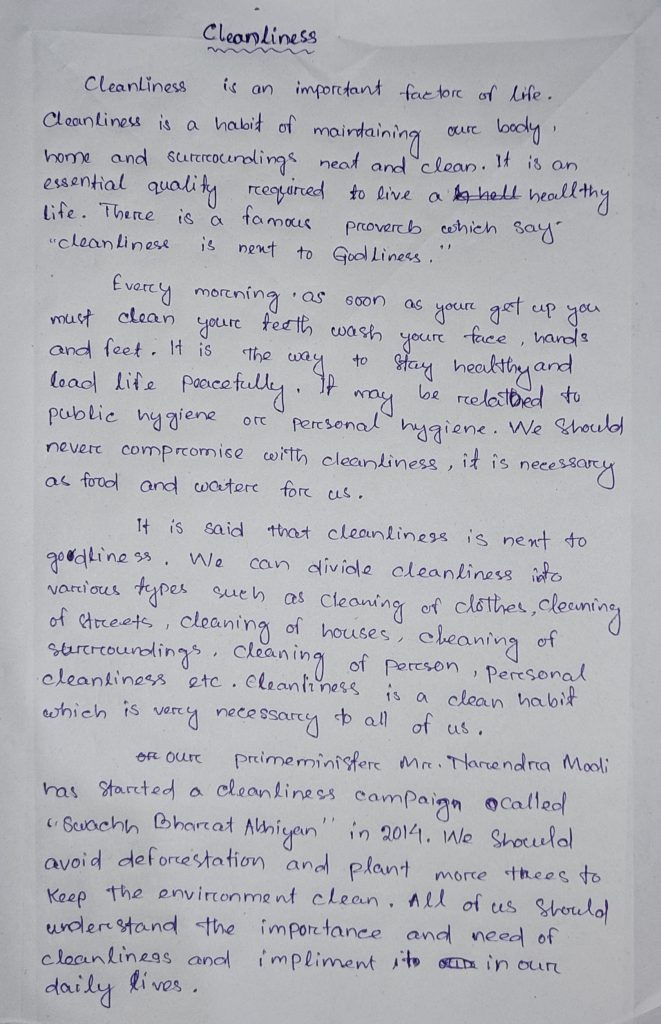 Cleanliness
Cleanliness is an important factor of life.
Cleanliness is a habit of maintaining our body,
home and surroundings neat and clean. It is an
essential quality required to live a heallthy
life. There is a famous proverb which say-
"cleanliness is next to GodLiness."
Every morning as soon as your get up you
must clean your teeth wash your face, hands
and feet. It is the way to stay healthy and
lead life peacefully. It may be related to
public hygiene or personal hygiene. We should
never compromise with cleanliness, it is necessary
as food and water for us.
It is said that cleanliness is next to
goodliness. We can divide cleanliness into
various types such as cleaning of clothes, cleaning
of streets, cleaning of houses, cleaning of
surroundings, cleaning of person, personal
cleanliness etc. Cleanliness is a clean habit
which is very necessary to all of us.
our primeminister Mr. Narendra Modi
has started a cleanliness campaign called
"Swachh Bharat Abhiyan" in 2014. We should
avoid deforestation and plant more threes to
keep the environment clean. All of us should
understand the importance and need of
cleanliness and impliment it in our
daily lives.